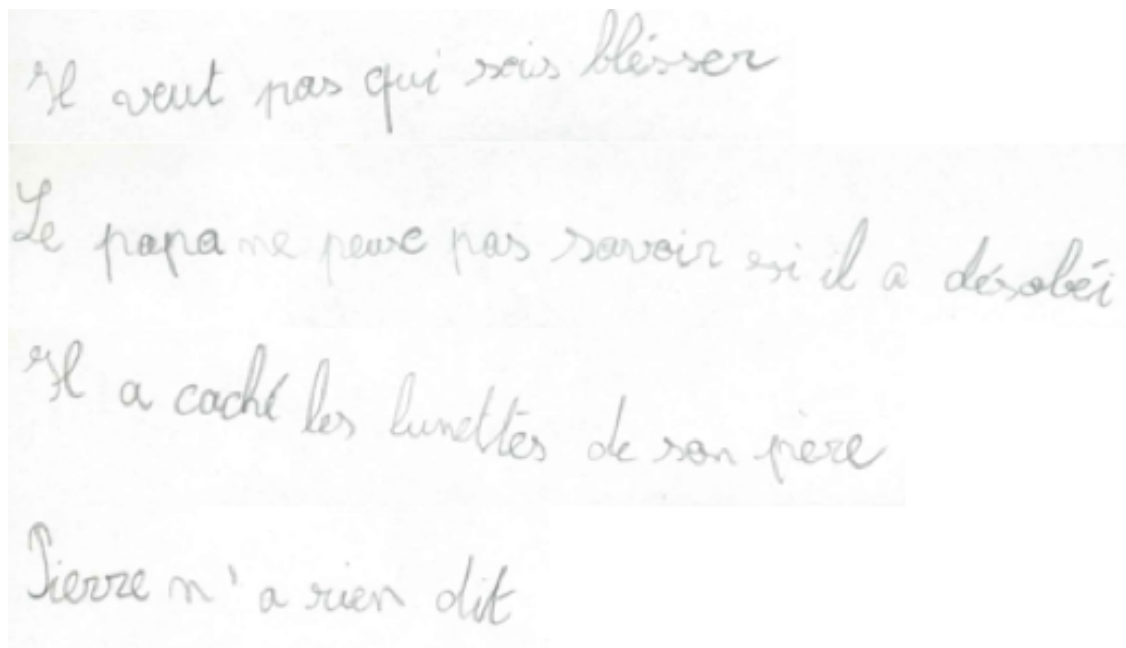 Il veut pas qui sois blésser
Le papa ne peux pas savoir si il a désobéi
Il a caché les lunettes de son père
Pierre n'a rien dit